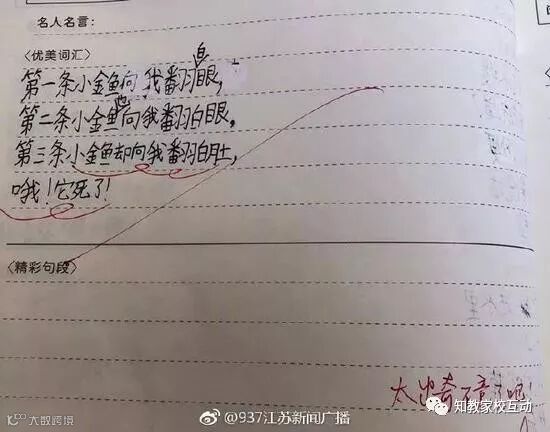 名人名言:
〈优美词汇〉
第一条小金鱼向我翻白眼,
第二条小金鱼也向我翻白眼,
第三条小金鱼却向我翻白肚,
哦!它死了!
〈精彩句段〉
太出奇不意了吧!
知教家校互动
大数跨境
@937江苏新闻广播